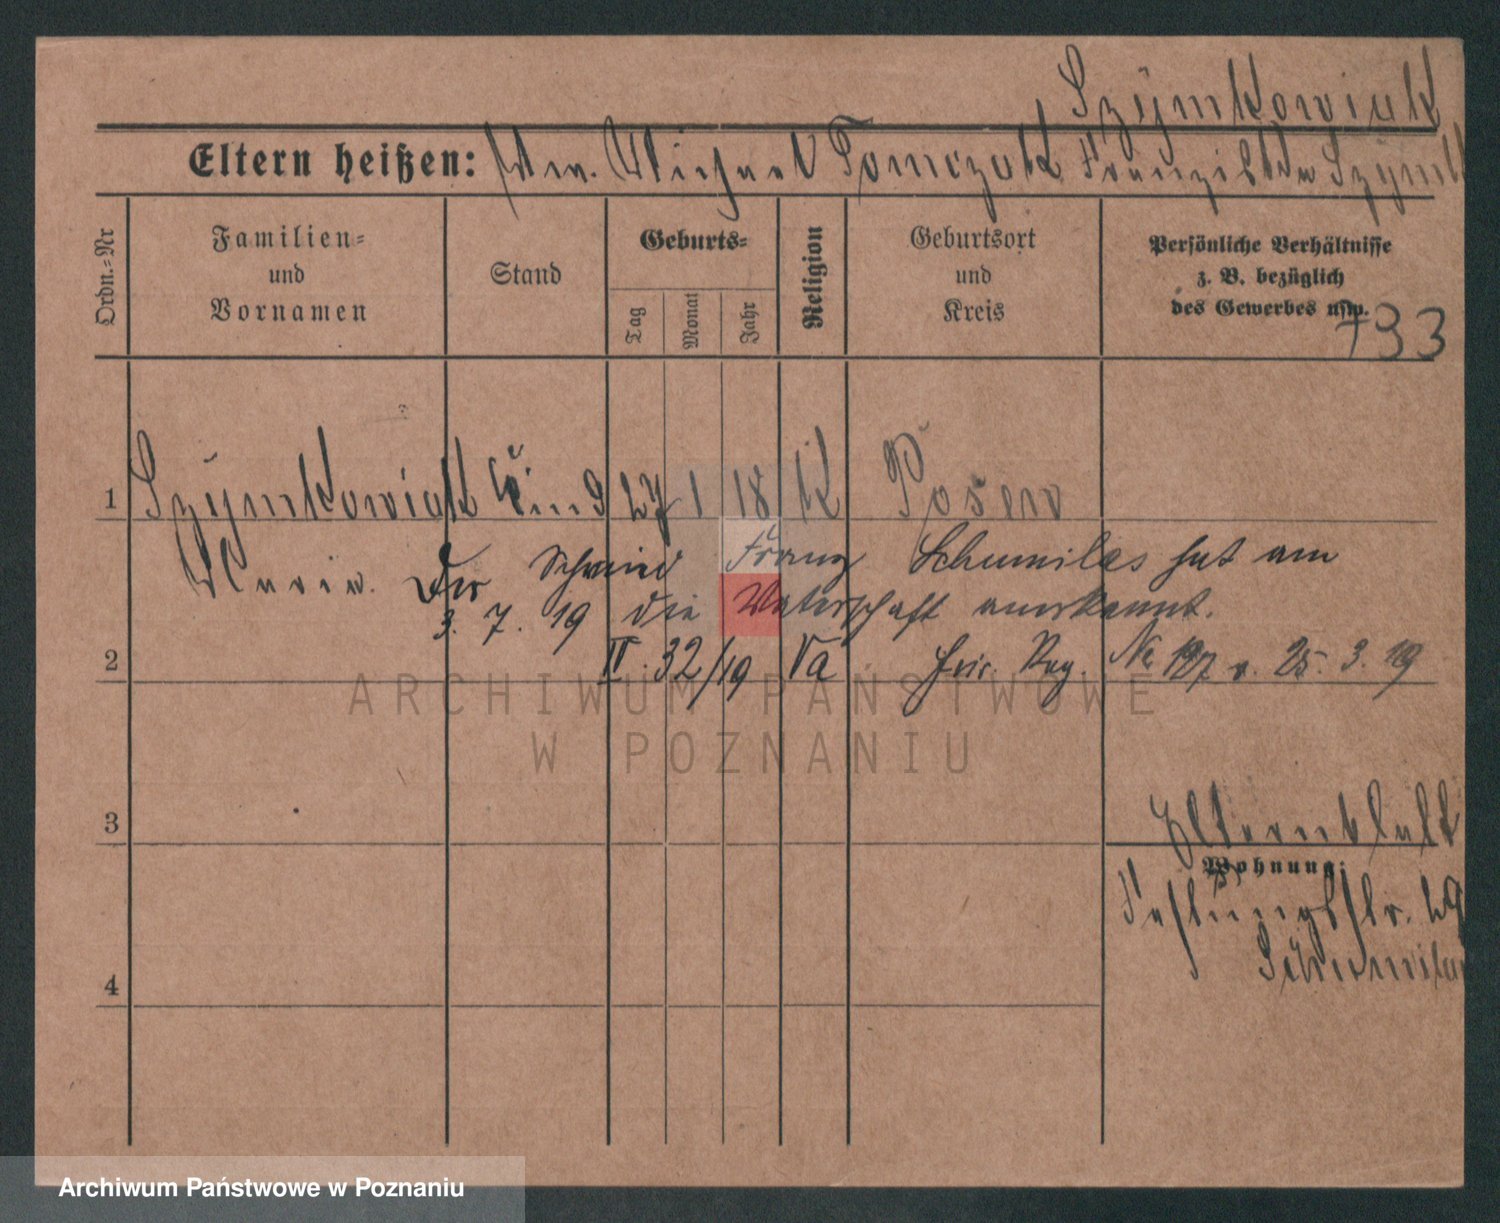 Szymkowiak
Eltern heißen: Michael Tomczak Franziska Szymk
Ordn.=Nr
Familien=
und
Vornamen
Stand
Geburts=
Tag
Monat
Jahr
Religion
Geburtsort
und
Kreis
Persönliche Verhältnisse
z. B. bezüglich
des Gewerbes usw.
733
1 Szymkowiak Kind 27 1 18 K Posen
Maria. Der Schmied Franz Schumilas hat am
3. 7. 19 die Vaterschaft anerkannt.
2 IV. 32/19 Va Reg. Nr 197 v. 25. 3. 19
ARCHIWUM PAŃSTWOWE
W POZNANIU
3
Elternblatt
Wohnung:
Festungsstr. 29
Schumilas
4
Archiwum Państwowe w Poznaniu